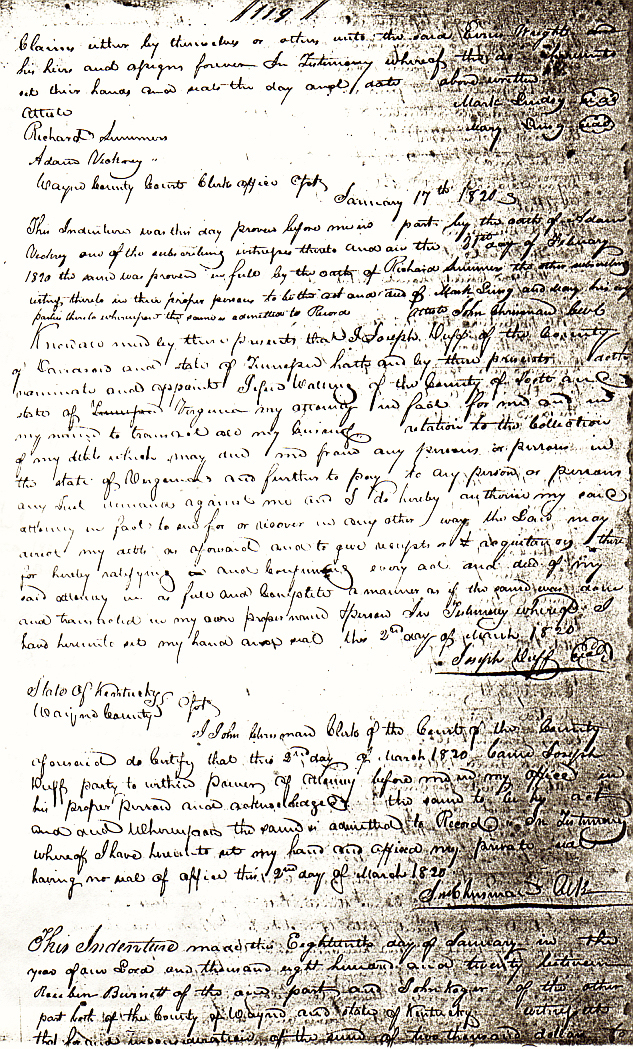 119
Claims either by themselves or others unto the said Evins Wright and
his heirs and assigns forever In Testimony whereof they do presents
set their hands and seals the day and date above written
Attests Mark Seal
Richard Summers Mary Seal
Adam Vickrey
Wayne County Court Clerks office Sct January 17th 1820
This Indenture was this day proven before me in part by the oath of Adam
Vickrey one of the subscribing witnesses thereto and on the 21st day of February
1820 the same was proved in full by the oath of Richard Summers the other subscribing
witness thereto in their proper persons to be the act and deed of Mark and Mary his
parties thereto whereupon the same is admitted to Record Attest John Chrisman Clerk
Know all men by these presents that I Joseph Duff of the County
of and state of Tennessee hath and by these presents doth
nominate and appoint Walling of the County of Scott and
state of Tennessee Virginia my attorney in fact for me and in
my name to transact all my business relation to the Collection
of my debts which may due me from any persons or persons in
the state of Virginia and further to pay to any person or persons
any Just demands against me and I do hereby authorise my said
attorney in fact to sue for or recover in any other way the said may
my debts as aforesaid and to give receipts or acquitances there
for hereby ratifying and Confirming every act and deed of my
said attorney in as full and Complete a manner as if the same was done
and transacted in my own proper name & person In Testimony whereof I
have hereunto set my hand and seal this 2nd day of March 1820
Joseph Duff Seal
State of Kentucky
Wayne County Sct
I John Chrisman Clerk of the Court of the County
aforesaid do Certify that this 2nd day of March 1820 Came Joseph
Duff party to within Power of Attorney before me in my office in
his proper person and acknowledged the same to be his act
and deed Whereupon the same is admitted to Record In Testimony
whereof I have hereunto set my hand and affixed my private seal
having no seal of office this 2nd day of March 1820
Jno Chrisman Clk
This Indenture made this Eighteenth day of January in the
year of our Lord one thousand eight hundred and twenty between
Reuben Burnett of the one part and John Koger of the other
part both of the County of Wayne and state of Kentucky witnesseth
that for and in consideration of the sum of two thousand dollars